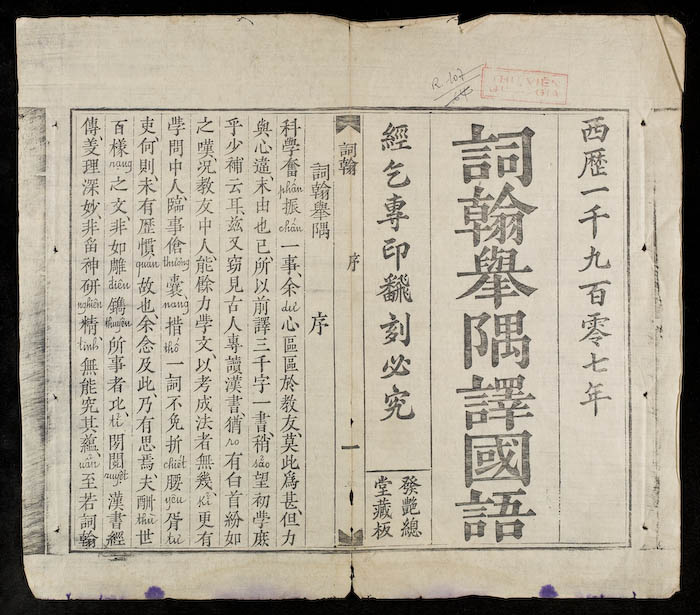 西歷一千九百零七年
詞翰舉隅譯國語
經乞專印翻刻必究
發艷總
堂藏板
R. 107
THƯ VIỆN
詞翰 序 一
詞翰舉隅 序
科學奮phấn振chấn一事、余dư心區區於教友、莫此爲甚、但力
與心違、未由也已、所以前譯三千字一書、稍sảo望初學庶
乎少補云耳、茲又窃見古人專讀漢書、猶 有白首紛如
之嘆、况教友中人、能餘力學文、以考成法者無幾kỉ、更有
學問中人、臨事傖thương囊nang措thố一詞、不免折chiết腰yêu胥tư
吏、何則、未有歷慣quán故也、余念及此、乃有思焉、夫酬thù世
百樣rạng之文、非如雕điêu鐫thuyên所事者比tỉ、閱duyệt漢書經
傳、義理深妙、非畱神研nghiên精tinh、無能究其蘊uẩn、至若詞翰